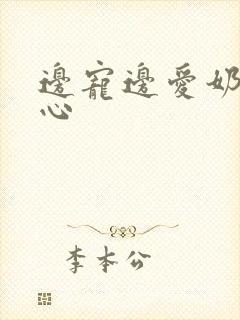 邊寵邊愛奶
心
李本公